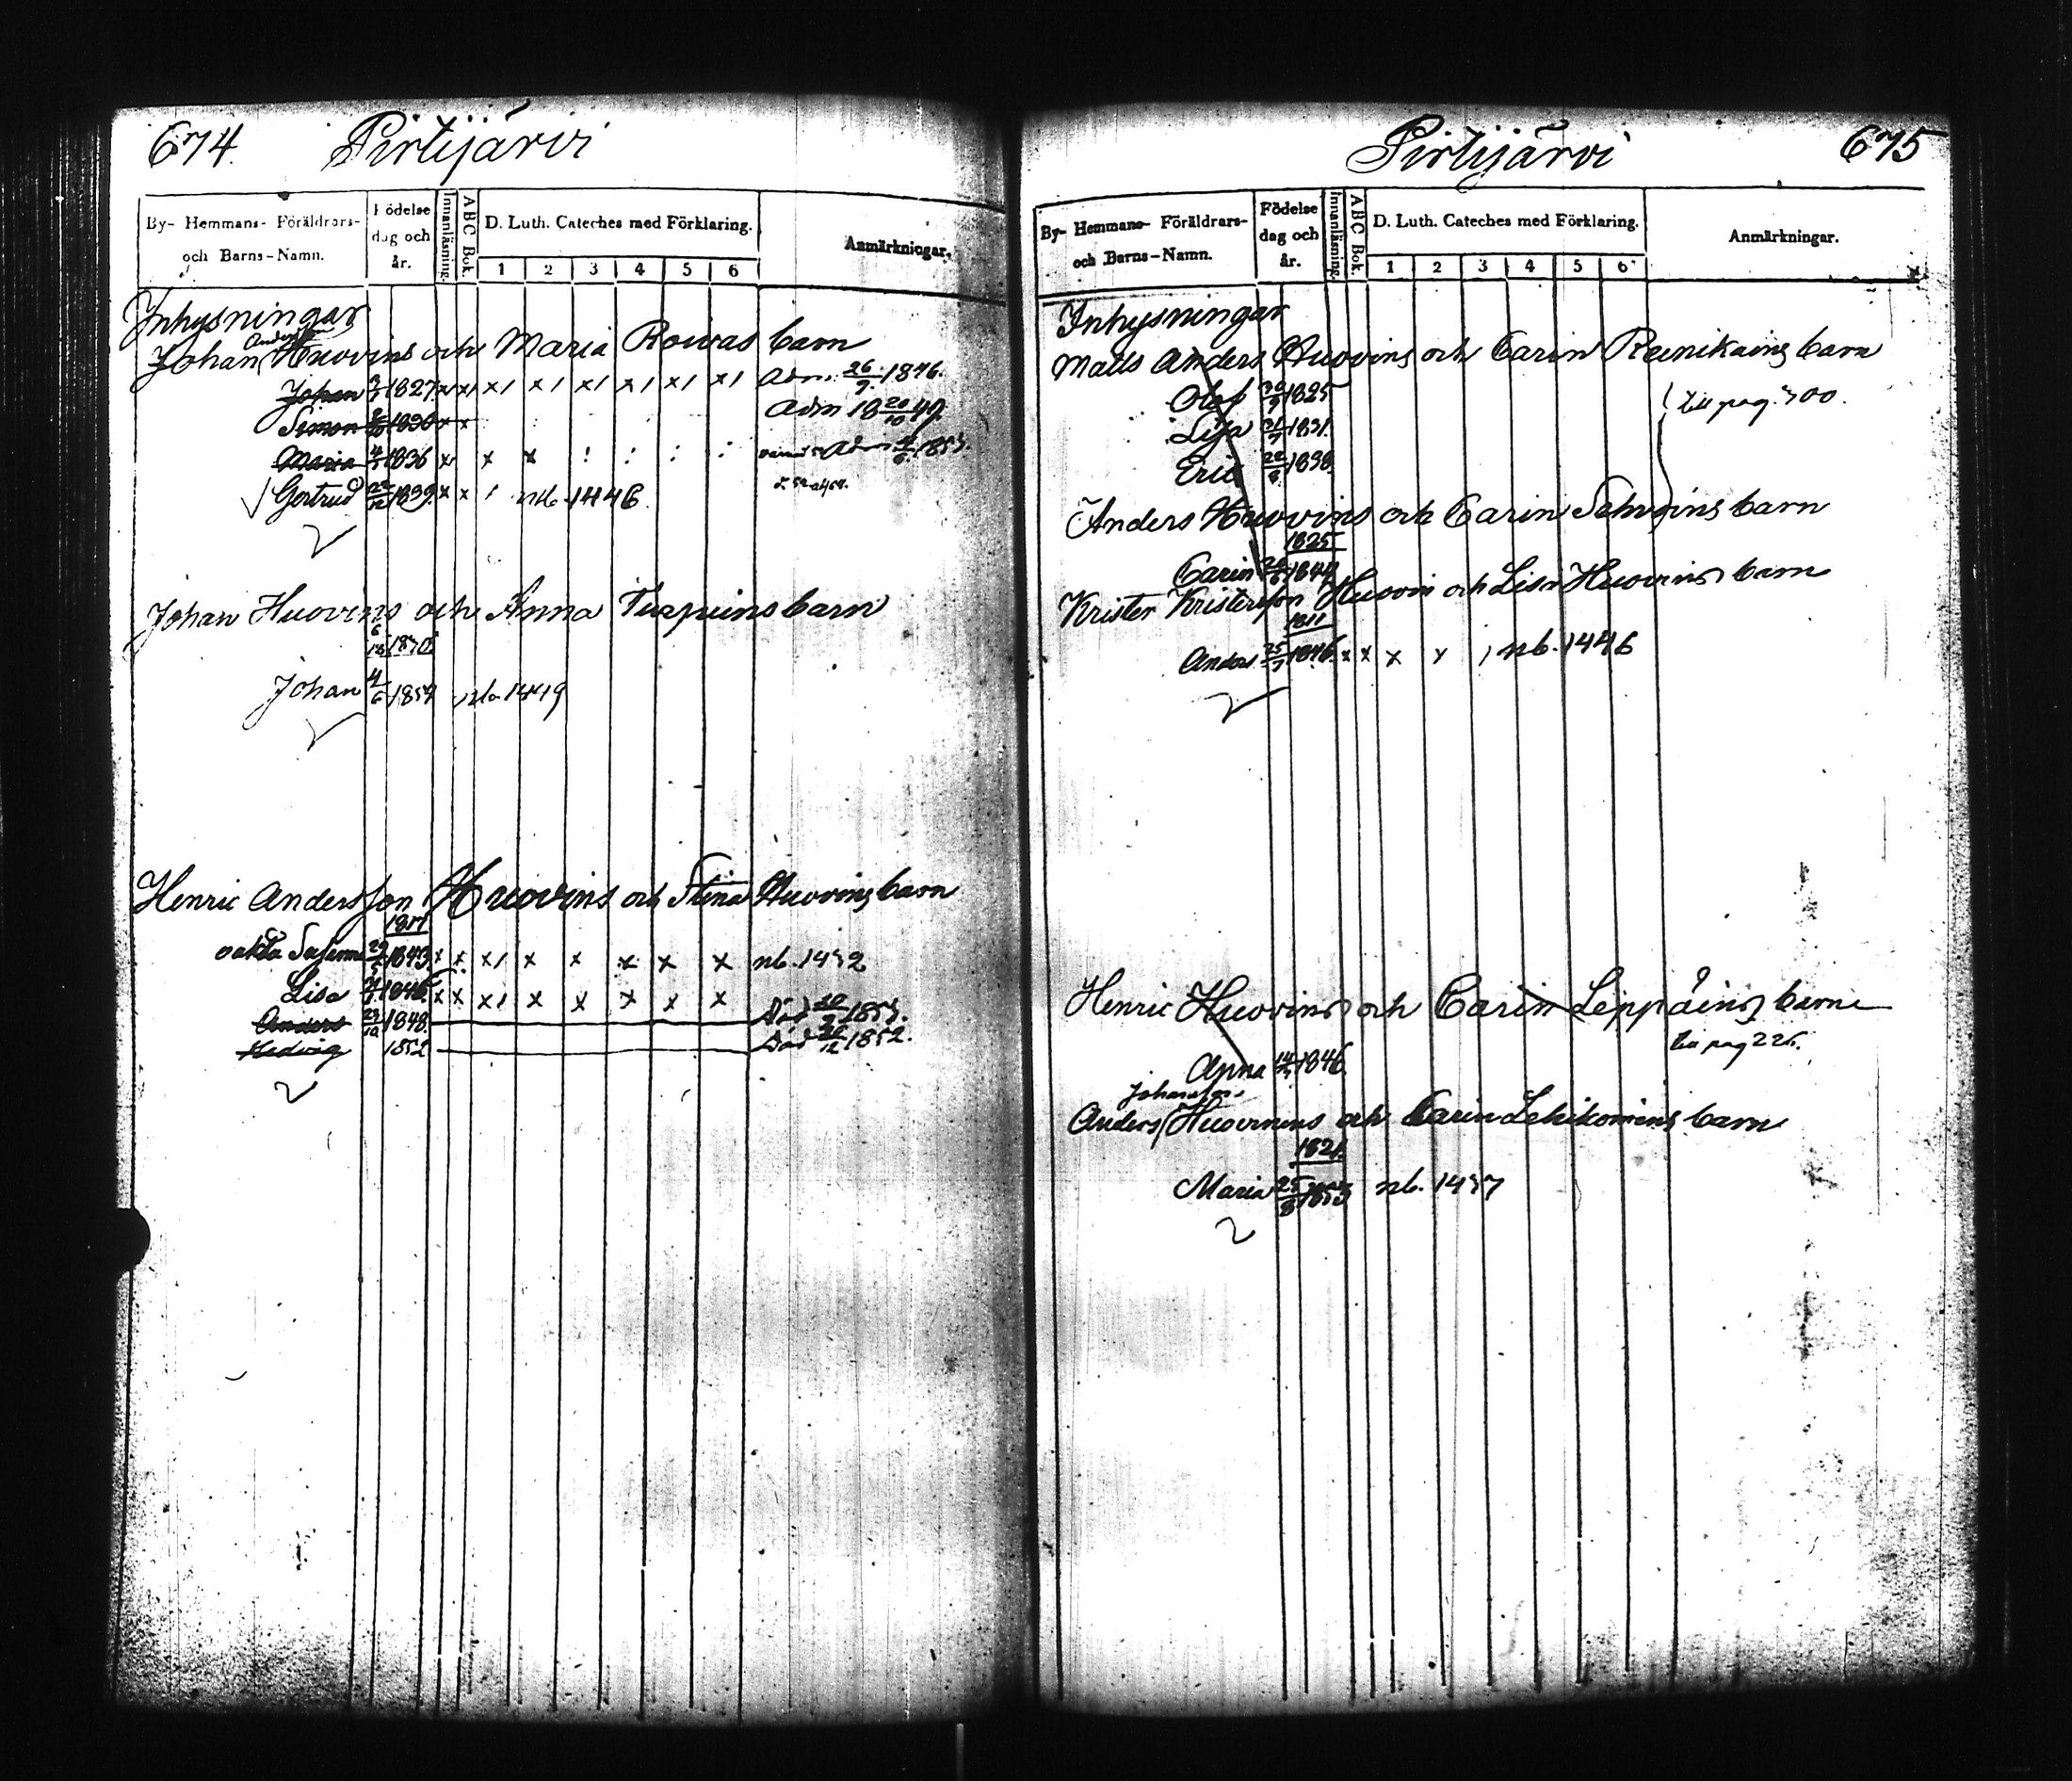 674. Pirtijärvi
By- Hemmans- Föräldrars- och Barns-Namn.
Födelse dag och år.
Innanläsning.
ABC Bok.
D. Luth. Cateches med Förklaring.
1 2 3 4 5 6
Anmärkningar.
Inhysningar
Johan Huovins och Maria Rowas barn
Johan 1827 x x x/ x/ x/ x/ x/ x/ Adm. 26/9 1846.
Simon 1830 x x Adm 18 20/10 49
Maria 1836 x x x : : : : Adm 1853.
Gertrud 1839 x x / nb. 1446
Johan Huovins och Anna barn
Johan 4/6 1854 nb 1449
Henric Andersson Huovins och Stina Huovins barn
1817
1843 x x x/ x x x x x nb. 1452
Lisa 1846 x x x/ x x x x x
Anders 1848 Död 1853.
Hedvig 1852 Död 1852.
Pirtijärvi 675
By- Hemmans- Föräldrars- och Barns-Namn.
Födelse dag och år.
Innanläsning.
ABC Bok.
D. Luth. Cateches med Förklaring.
1 2 3 4 5 6
Anmärkningar.
Inhysningar
Matts Anders Huovins och Carin Reinikains barn
Olof 1825
Lisa 1831
Eric 1838
till pag. 700.
Anders Huovins och Carin barn
1825
Carin
Krister Kristersson Huovin och Lisa Huovins barn
1811
Anders 25/7 1846. x x x x / nb. 1446
Henric Huovins och Carin Leppäins barn
till pag 225.
Anna 1846.
Johansson
Anders Huovinens och Carin Lehikoinens barn
1821.
Maria 25/8 1853 nb. 1457